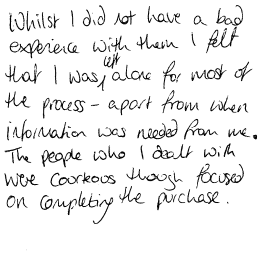 Whilst I did not have a bad
experience with them I felt
that I was left alone for most of
the process - apart from when
information was needed from me.
The people who I dealt with
were courteous though focused
on completing the purchase.